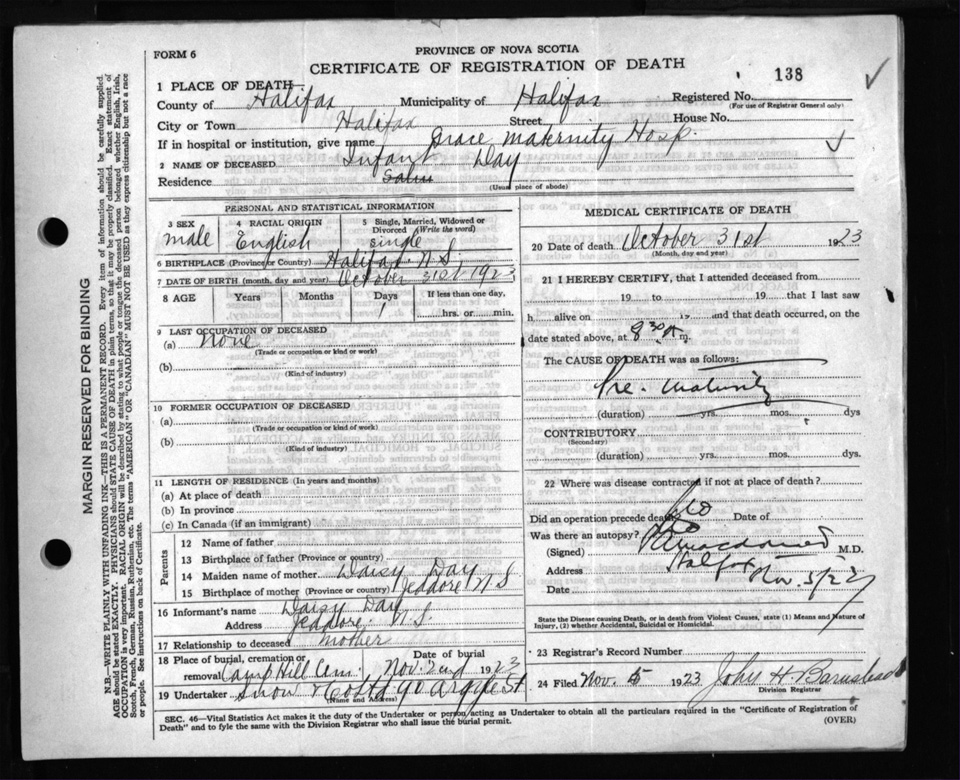 FORM 6
PROVINCE OF NOVA SCOTIA
CERTIFICATE OF REGISTRATION OF DEATH
138
1 PLACE OF DEATH
County of Halifax Municipality of Halifax Registered No.
(For use of Registrar General only)
City or Town Halifax Street House No.
If in hospital or institution, give name Grace Maternity Hosp.
2 NAME OF DECEASED Infant Day
Residence
(Usual place of abode)
PERSONAL AND STATISTICAL INFORMATION
3 SEX male
4 RACIAL ORIGIN English
5 Single, Married, Widowed or Divorced (Write the word) single
6 BIRTHPLACE (Province or Country) Halifax N.S
7 DATE OF BIRTH (month, day and year) October 31st 1923
8 AGE Years Months Days 1 If less than one day, hrs. or min.
9 LAST OCCUPATION OF DECEASED
(a) None
(Trade or occupation or kind of work)
(b)
(Kind of industry)
10 FORMER OCCUPATION OF DECEASED
(a)
(Trade or occupation or kind of work)
(b)
(Kind of industry)
11 LENGTH OF RESIDENCE (In years and months)
(a) At place of death
(b) In province
(c) In Canada (if an immigrant)
Parents
12 Name of father
13 Birthplace of father (Province or country)
14 Maiden name of mother Daisy Day
15 Birthplace of mother (Province or country) Jeddore N S
16 Informant's name Daisy Day
Address Jeddore. N.S.
17 Relationship to deceased mother
18 Place of burial, cremation or removal Camp Hill Cem. Date of burial Nov. 2nd 1923
19 Undertaker Snow & Co Ltd 90 Argyle St
(Name and Address)
MEDICAL CERTIFICATE OF DEATH
20 Date of death October 31st 1923
(Month, day and year)
21 I HEREBY CERTIFY, that I attended deceased from
19 to 19 that I last saw
h alive on 19 and that death occurred, on the
date stated above, at 8 30 A m.
The CAUSE OF DEATH was as follows:
Pre-maturity
(duration) yrs. mos. dys
CONTRIBUTORY
(Secondary)
(duration) yrs. mos. dys.
22 Where was disease contracted if not at place of death?
Did an operation precede death? No Date of
Was there an autopsy? No
(Signed) M.D.
Address Halifax
Date Nov. 5/23
State the Disease causing Death, or in death from Violent Causes, state (1) Means and Nature of Injury, (2) whether Accidental, Suicidal or Homicidal.
23 Registrar's Record Number
24 Filed Nov. 5 1923 John H. Barnstead
Division Registrar
SEC. 46—Vital Statistics Act makes it the duty of the Undertaker or person acting as Undertaker to obtain all the particulars required in the "Certificate of Registration of
Death" and to fyle the same with the Division Registrar who shall issue the burial permit.
(OVER)
MARGIN RESERVED FOR BINDING
N.B.—WRITE PLAINLY WITH UNFADING INK—THIS IS A PERMANENT RECORD. Every item of information should be carefully supplied.
AGE should be stated EXACTLY. PHYSICIANS should STATE CAUSE OF DEATH in plain terms, so that it may be properly classified. Exact statement of
OCCUPATION is very important. RACIAL ORIGIN will be described by stating to what people or tongue the deceased person belonged whether English, Irish,
Scotch, French, German, Russian, Ruthenian, etc. The terms "AMERICAN" or "CANADIAN" MUST NOT BE USED as they express citizenship but not a race
or people. See instructions on back of Certificate.